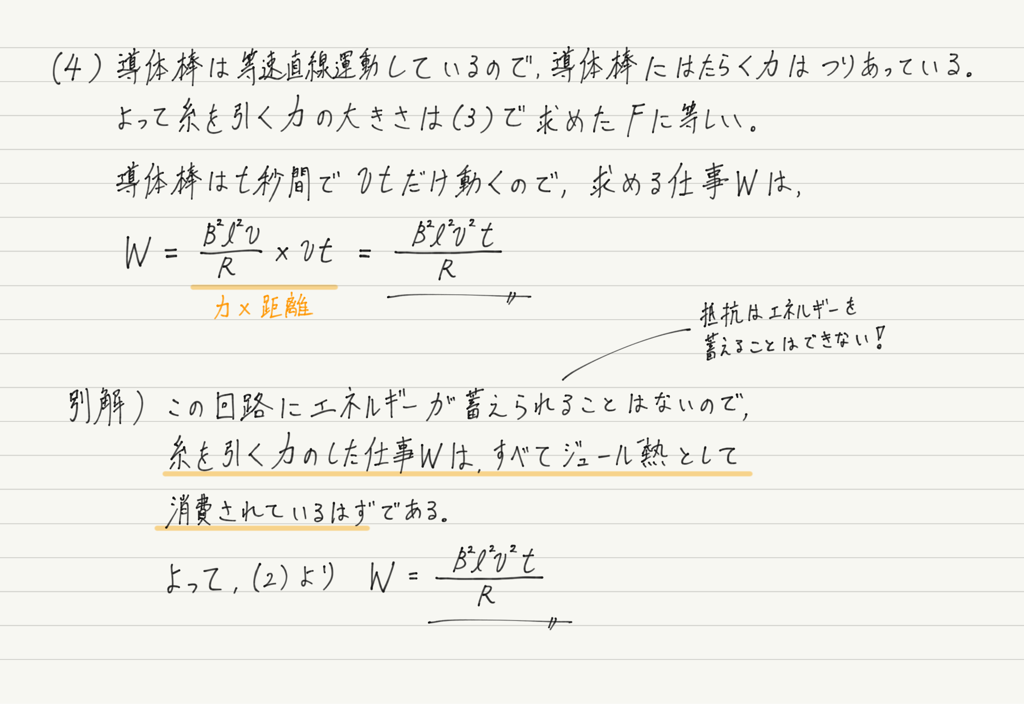 (4) 導体棒は等速直線運動しているので、導体棒にはたらく力はつりあっている。
よって糸を引く力の大きさは(3)で求めたFに等しい。
導体棒はt秒間でvtだけ動くので、求める仕事Wは、
W = B²l²v/R × vt = B²l²v²t/R
力×距離
抵抗はエネルギーを
蓄えることはできない!
別解) この回路にエネルギーが蓄えられることはないので、
糸を引く力のした仕事Wは、すべてジュール熱として
消費されているはずである。
よって、(2)より W = B²l²v²t/R